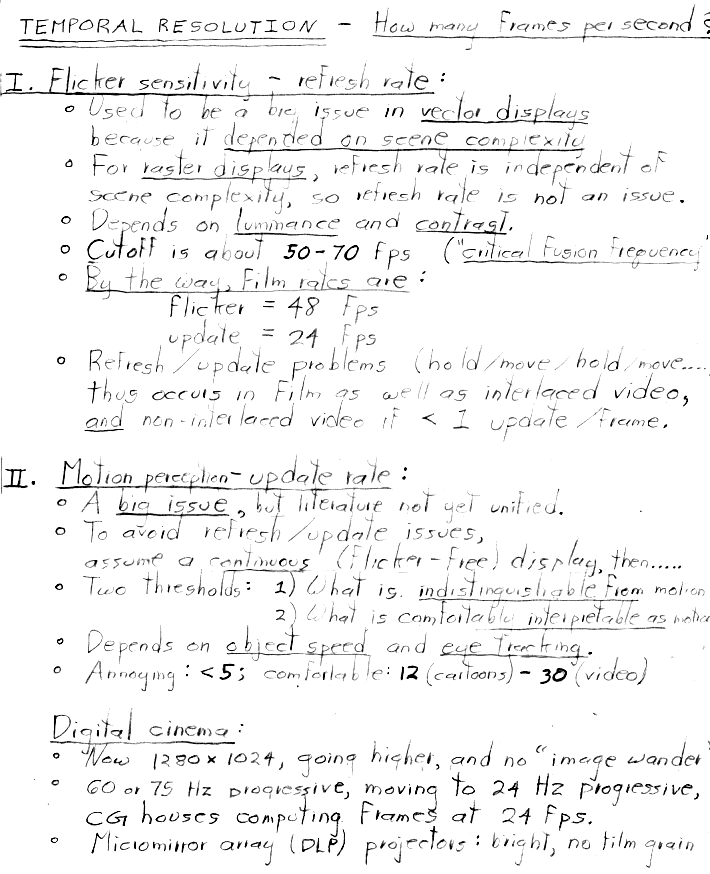 TEMPORAL RESOLUTION - How many frames per second?
I. Flicker sensitivity - refresh rate:
o Used to be a big issue in vector displays
because it depended on scene complexity
o For raster displays, refresh rate is independent of
scene complexity, so refresh rate is not an issue.
o Depends on luminance and contrast.
o Cutoff is about 50-70 fps ("critical fusion frequency"
o By the way, film rates are:
flicker = 48 fps
update = 24 fps
o Refresh/update problems (hold/move/hold/move....
thus occurs in film as well as interlaced video,
and non-interlaced video if < 1 update/frame.
II. Motion perception - update rate:
o A big issue, but literature not yet unified.
o To avoid refresh/update issues,
assume a continuous (flicker-free) display, then.....
o Two thresholds: 1) What is indistinguishable from motion
2) What is comfortably interpretable as motion
o Depends on object speed and eye tracking.
o Annoying: <5; comfortable: 12 (cartoons) - 30 (video)
Digital cinema:
o Now 1280 x 1024, going higher, and no "image wander"
o 60 or 75 Hz progressive, moving to 24 Hz progressive,
CG houses computing frames at 24 fps.
o Micromirror array (DLP) projectors: bright, no film grain